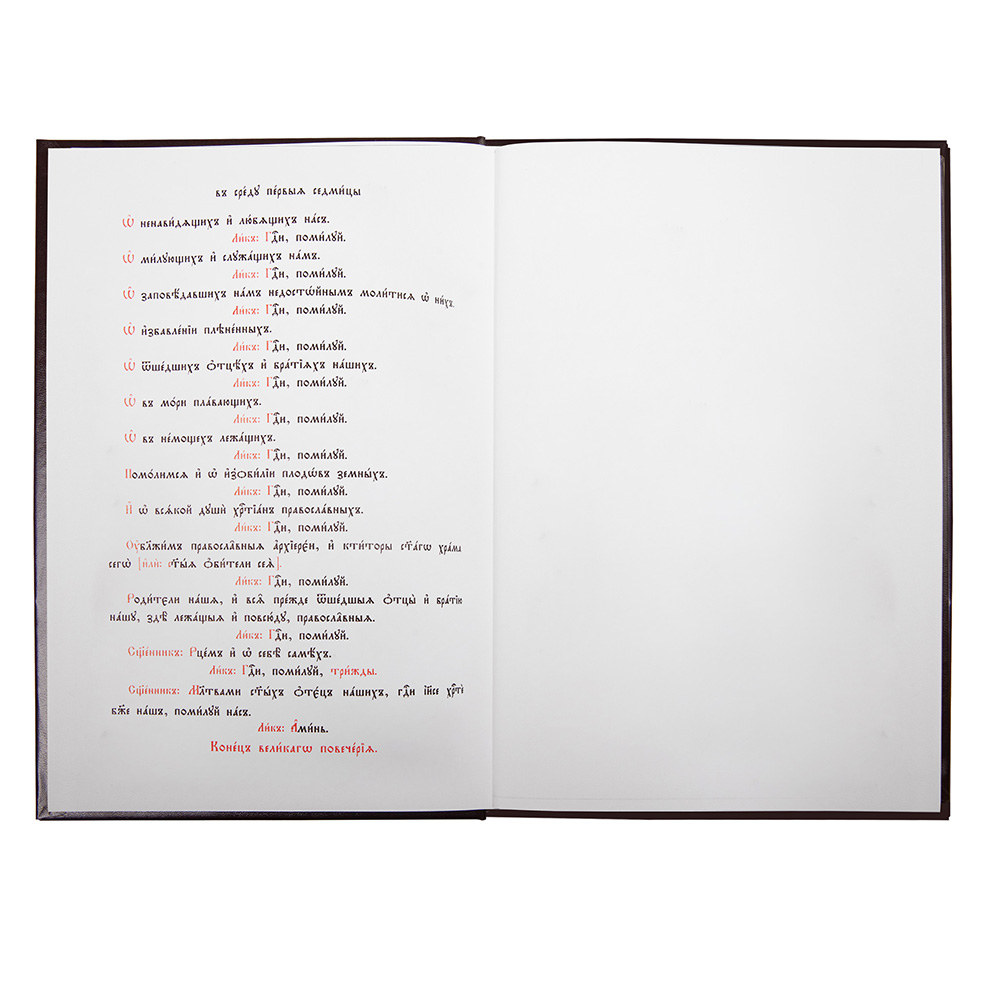 въ сре́ду пе́рвыѧ седми́цы
Ѽ ненави́дѧщихъ и҆ лю́бѧщихъ на́съ.
Ли́къ: Гдⷭ҇и, поми́лꙋй.
Ѽ ми́лꙋющихъ и҆ слꙋжа́щихъ на́мъ.
Ли́къ: Гдⷭ҇и, поми́лꙋй.
Ѽ заповѣ́давшихъ на́мъ недостѡ́йнымъ моли́тисѧ ѡ҆ ни́хъ.
Ли́къ: Гдⷭ҇и, поми́лꙋй.
Ѽ и҆збавле́нїи плѣне́нныхъ.
Ли́къ: Гдⷭ҇и, поми́лꙋй.
Ѽ ѿше́дшихъ ѻ҆тцѣ́хъ и҆ бра́тїѧхъ на́шихъ.
Ли́къ: Гдⷭ҇и, поми́лꙋй.
Ѽ въ мо́ри пла́вающихъ.
Ли́къ: Гдⷭ҇и, поми́лꙋй.
Ѽ въ не́мощехъ лежа́щихъ.
Ли́къ: Гдⷭ҇и, поми́лꙋй.
Помо́лимсѧ и҆ ѡ҆ и҆зѻби́лїи плодѡ́въ земны́хъ.
Ли́къ: Гдⷭ҇и, поми́лꙋй.
И҆ ѡ҆ всѧ́кой дꙋшѝ хрⷭ҇тїа́нъ правосла́вныхъ.
Ли́къ: Гдⷭ҇и, поми́лꙋй.
Оу҆бл҃жи́мъ правосла̑вныѧ а҆рхїерє́и, и҆ кти́торы ст҃а́гѡ хра́ма
сегѡ̀ [и҆лѝ: ст҃ы́ѧ ѻ҆би́тели сеѧ̀].
Ли́къ: Гдⷭ҇и, поми́лꙋй.
Роди́тєли на́шѧ, и҆ всѧ̑ пре́жде ѿше́дшыѧ ѻ҆тцы̀ и҆ бра́тїю
на́шꙋ, здѣ̀ лежа́щыѧ и҆ повсю́дꙋ, правосла̑вныѧ.
Ли́къ: Гдⷭ҇и, поми́лꙋй.
Сщ҃е́нникъ: Рце́мъ и҆ ѡ҆ себѣ̀ самѣ́хъ.
Ли́къ: Гдⷭ҇и, поми́лꙋй, три́жды.
Сщ҃е́нникъ: Мл҃твами ст҃ы́хъ ѻ҆тє́цъ на́шихъ, гдⷭ҇и і҆и҃се хрⷭ҇тѐ
бж҃е на́шъ, поми́лꙋй на́съ.
Ли́къ: А҆ми́нь.
Коне́цъ вели́кагѡ повече́рїѧ.